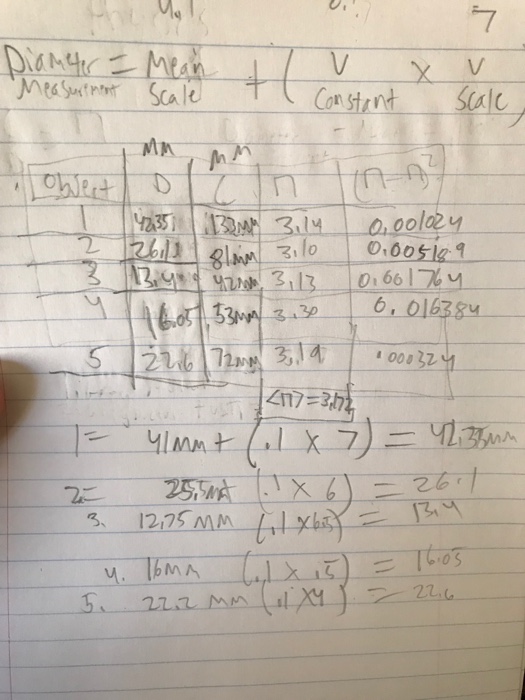 7
Diameter = Mean + ( V × V
Measurment Scale Constant Scale
MM MM
Object D C π (π-π)²
1 42.35 133mm 3.14 0.001024
2 26.1 81mm 3.10 0.005189
3 13.4 42mm 3.13 0.001764
4 16.05 53mm 3.30 0.016384
5 22.6 72mm 3.19 .000324
<π>=3.172
1= 41mm + (.1 × 7) = 42.35mm
2= 25.5 (.1 × 6) = 26.1
3. 12.75 MM (.1 × 6.5) = 13.4
4. 16mm (.1 × .5) = 16.05
5. 22.2 mm (.1 × 4) = 22.6